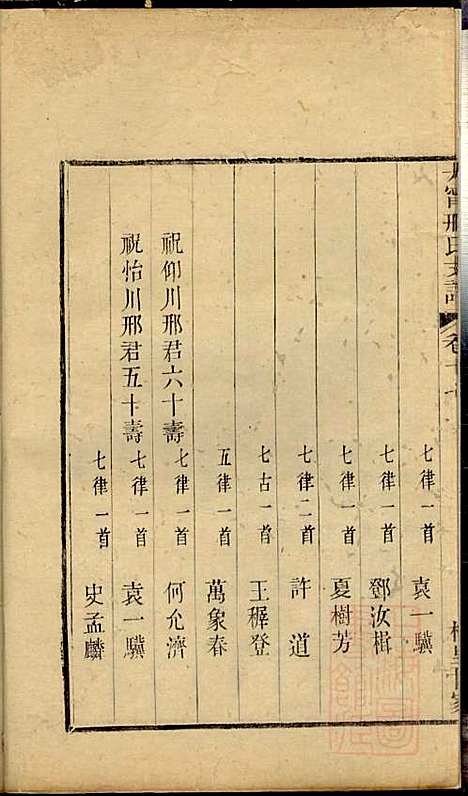 邢氏支譜
七律一首 袁一驥
七律一首 鄧汝楫
七律一首 夏樹芳
七律二首 許道
七古一首 王穉登
五律一首 萬象春
祝仰川邢君六十壽 七律一首 何允濟
祝怡川邢君五十壽 七律一首 袁一驥
七律一首 史孟麟